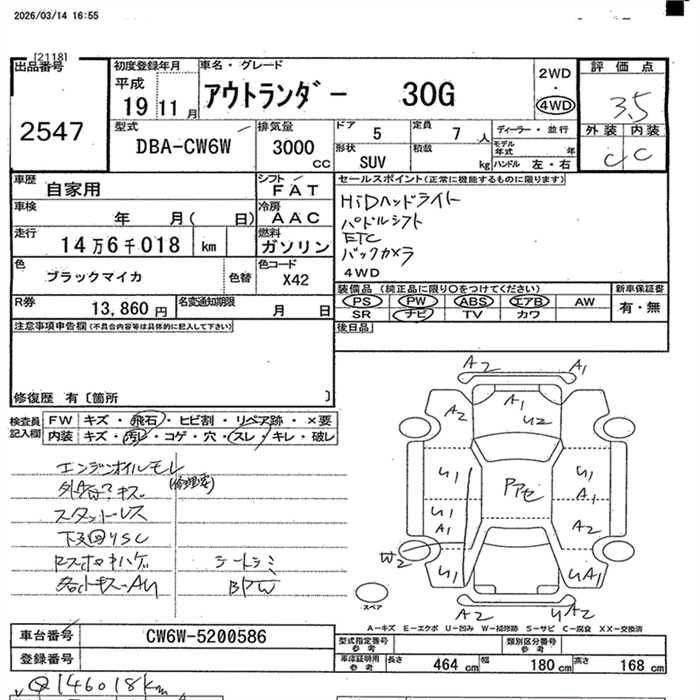 2026/03/14 16:55
[2118]
出品番号
2547
初度登録年月
平成
19 11月
車名・グレード
アウトランダー 30G
2WD
・
4WD
評価点
3.5
外装 内装
C C
型式
DBA-CW6W
排気量
3000 cc
ドア 5
定員 7 人
形状 SUV
積載 kg
ディーラー・並行
モデル年式 年
ハンドル 左・右
車歴 自家用
シフト FAT
車検 年 月( 日)
冷房 AAC
走行 14万6千018 km
燃料 ガソリン
色 ブラックマイカ
色替
色コード X42
R券 13,860円
名変通知期限 月 日
セールスポイント(正常に機能するものに限ります)
HiDヘッドライト
パドルシフト
ETC
バックカメラ
4WD
装備品(純正品に限り○をつけてください)
新車保証書
PS PW ABS エアB AW
SR ナビ TV カワ
有・無
後日品
注意事項申告欄(不具合内容等は具体的に記入して下さい)
修復歴 有〔箇所 〕
検査員記入欄
FW キズ・飛石・ヒビ割・リペア跡・×要
内装 キズ・汚レ・コゲ・穴・スレ・キレ・破レ
エンジンオイルモレ
(修理要)
スタットレス
シートシミ
BPW
A2 A1
A2 A1 U2
U1 U1
A1
U1 A1 A2
W2
U1 UA1
A2 UA2
スペア
A-キズ E-エクボ U-凹み W-補修跡 S-サビ C-腐食 XX-交換済
車台番号 CW6W-5200586
登録番号
型式指定番号 参考
類別区分番号 参考
車庫証明用 参考
長さ 464 cm 幅 180 cm 高さ 168 cm
Q146018km